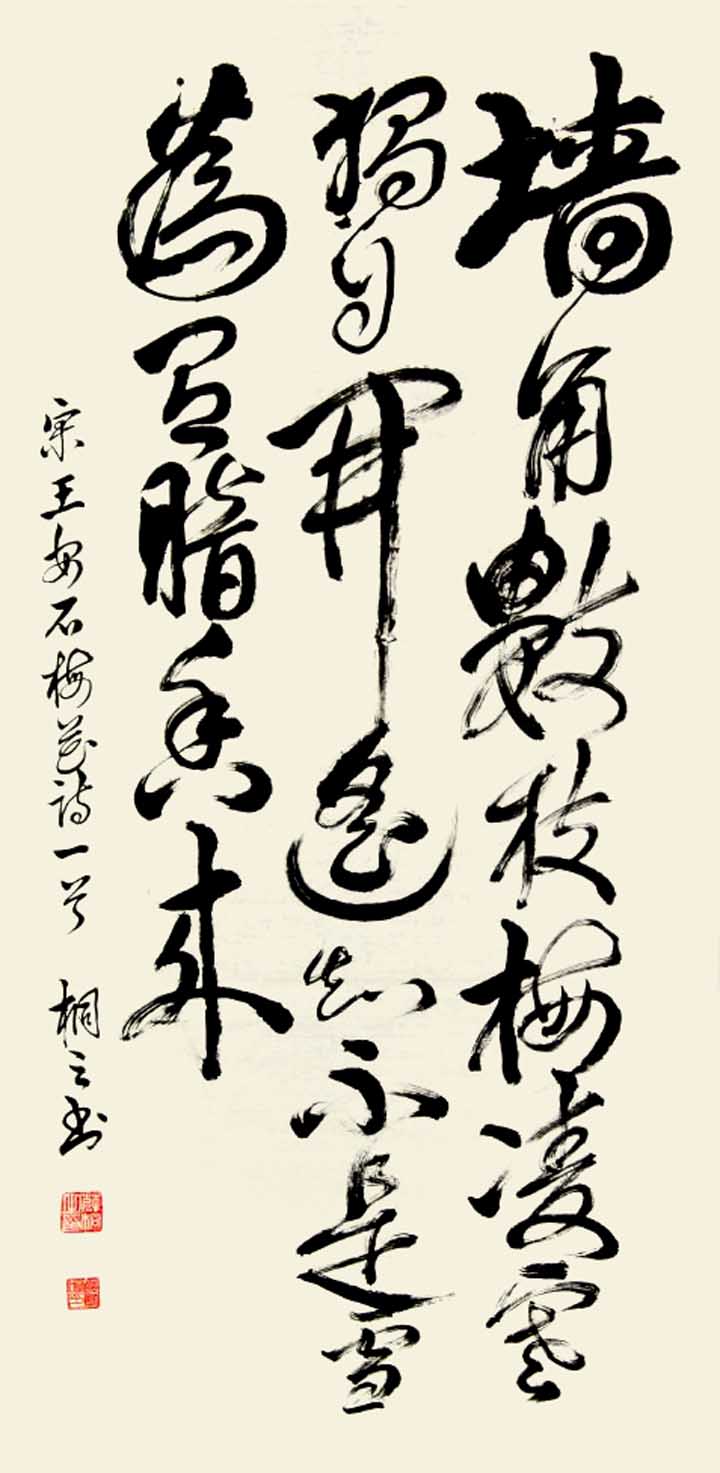 墙角數枝梅凌寒
獨自開遙知不是雪
為有暗香来
宋王安石梅花诗一首 桐之书